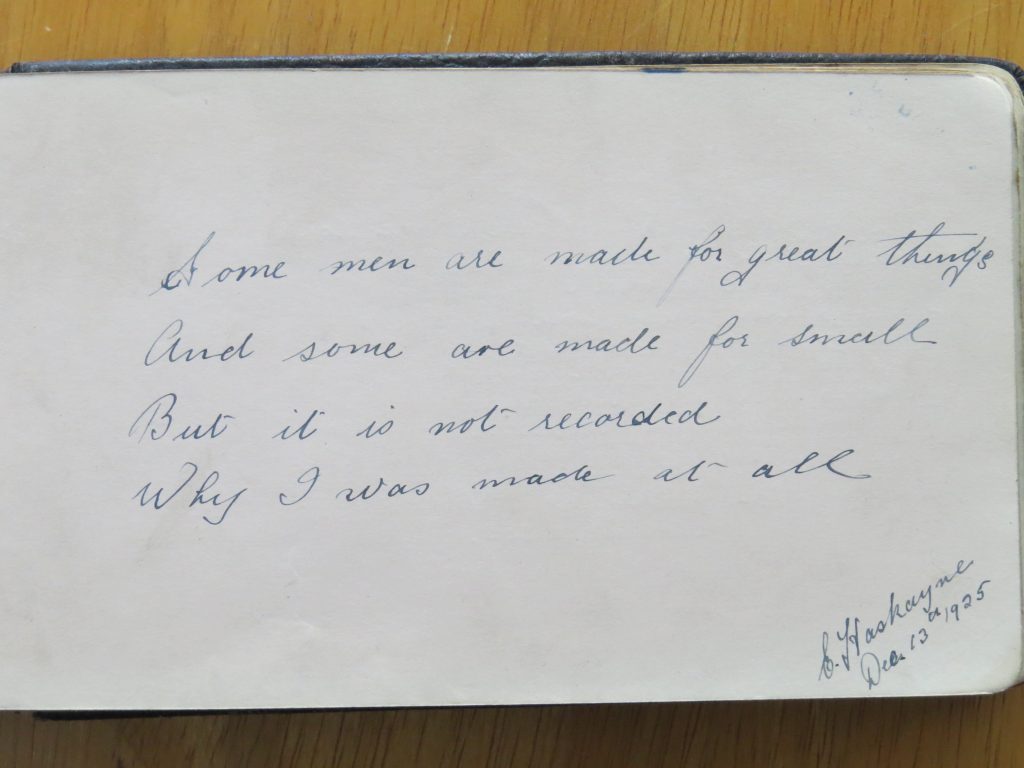 Some men are made for great things
And some are made for small
But it is not recorded
Why I was made at all
E. Haskayne
Dec 13th 1925